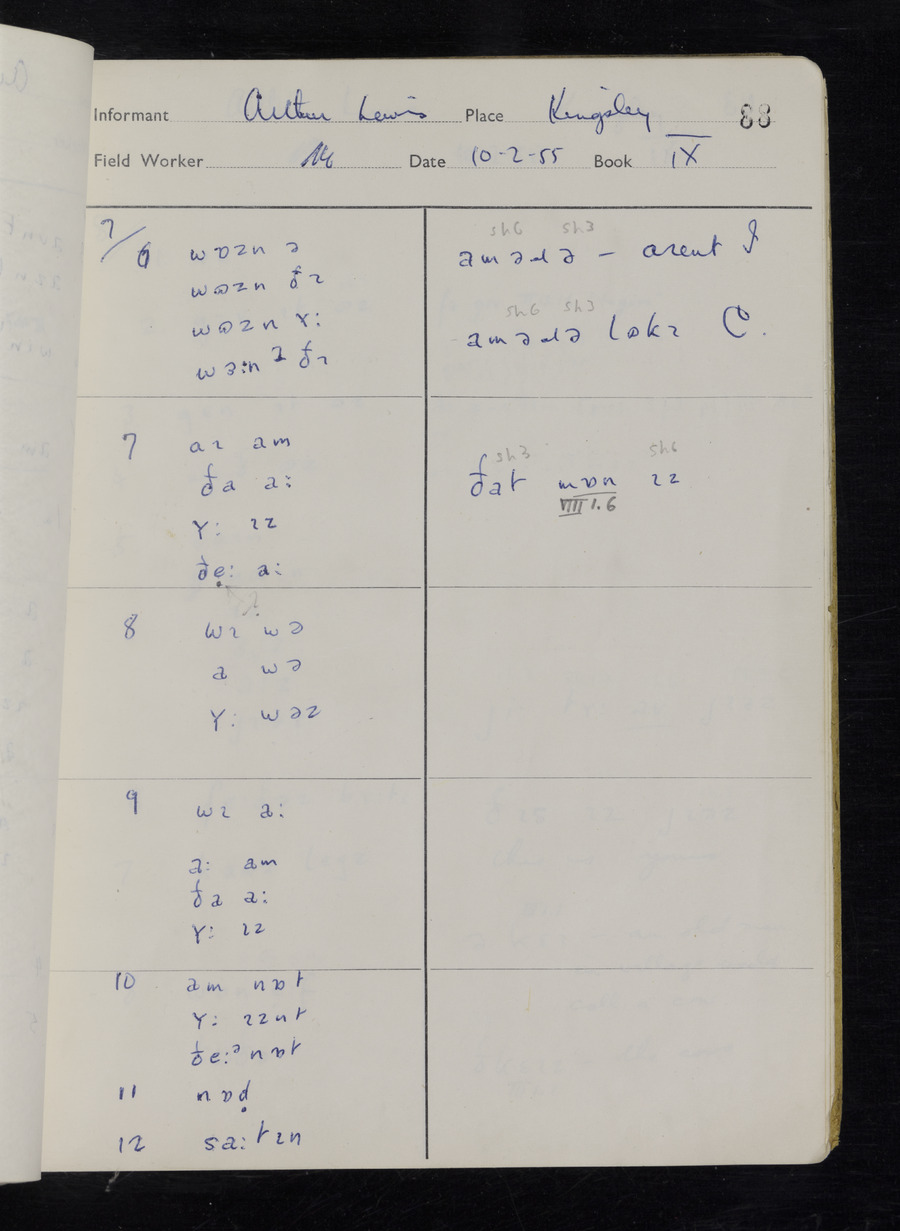 Informant Arthur Lewis Place Kingsley 88
Field Worker Date 10-2-55 Book IX
7/6 wɒzn ə
wɒzn ðɪ
wɒzn ɤ:
wɜ:n ðɪ
sh6 sh3
amədə – arent I
sh6 sh3
amədə lɒkɪ C.
7 aɪ am
ða a:
ɤ: ɪz
ðẹ: a:
sh3 sh6
ðat mɒn ɪz
VIII 1.6
8 wɪ wə
a wə
ɤ: wəz
9 wɪ a:
a: am
ða a:
ɤ: ɪz
10 am nɒt
ɤ: ɪznt
ðe:ᵊ nɒt
11 nɒḍ
12 sa:tɪn